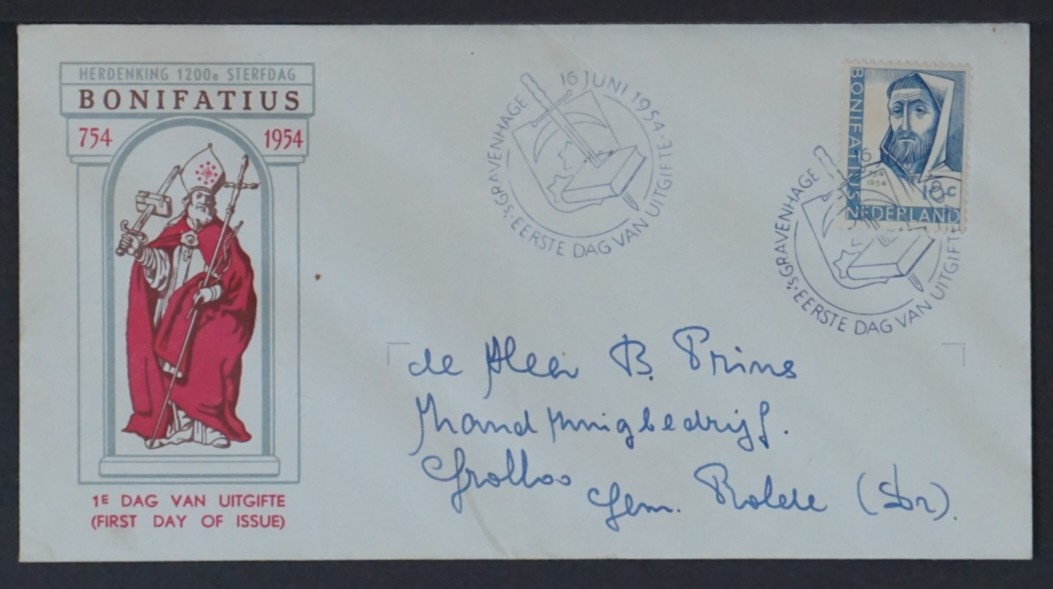 HERDENKING 1200e STERFDAG
BONIFATIUS
754 1954
1E DAG VAN UITGIFTE
(FIRST DAY OF ISSUE)
'S-GRAVENHAGE 16 JUNI 1954
EERSTE DAG VAN UITGIFTE
BONIFATIUS
754
1954
10c
NEDERLAND
'S-GRAVENHAGE
EERSTE DAG VAN UITGIFTE
de Heer B. Prins
Grolloo Gem. Rolde (Dr).